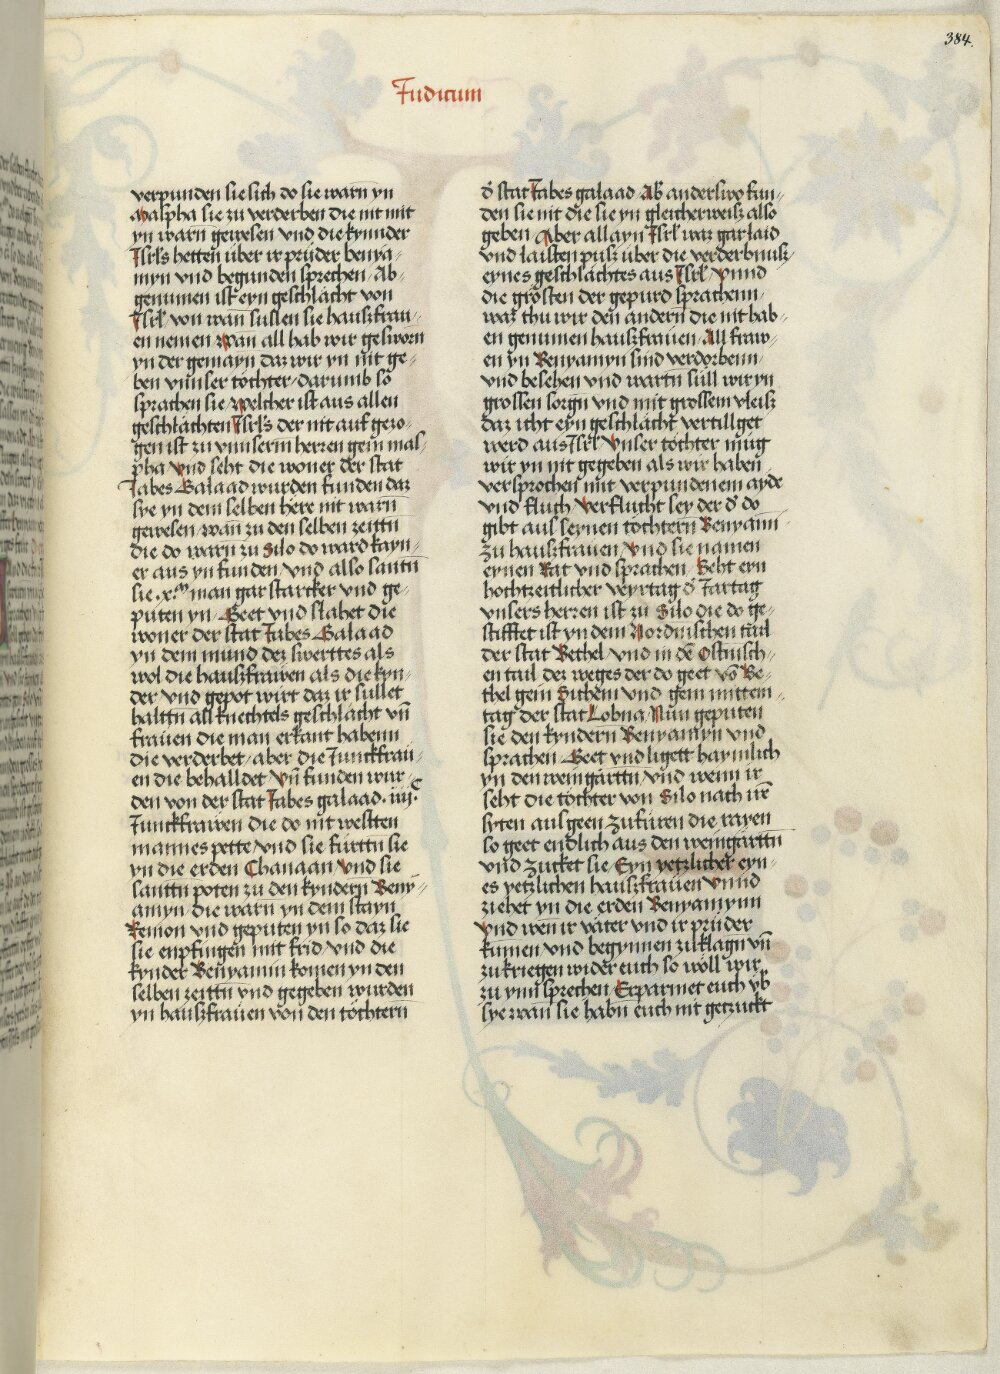 384.
Judicum
verpunden sie sich do sie warn yn
Maspha sie zu verderben die nit mit
yn warn gewesen vnd die kynnder
Isrls hetten über ir prüder benya⸗
myn vnd begunden sprechen Ab⸗
genumen ist eyn geschlächt von
Isrl von wan sullen sie hauszfrau⸗
en nemen wan all hab wir gesworn
yn der gemayn daz wir yn nit ge⸗
ben vnnser tochter/ darumb so
sprachen sie welcher ist aus allen
geschlächten Isrls der nit auf gezo⸗
gen ist zu vnnserm herren gein mas⸗
pha vnd seht die woner der stat
Jabes Galaad wurden funden daz
sye yn dem selben here nit warn̄
gewesen/ wan̄ zu den selben zeittn̄
die do warn zu Silo do ward kayn⸗
er aus yn funden vnd also santn̄
sie .x.m man gar starcker vnd ge⸗
puten yn Geet vnd slahet die
woner der stat Jabes Galaad
yn dem mund dez swerttes als
wol die hauszfrawen als die kyn⸗
der vnd gepot wirt daz ir sullet
haltn̄ all knechtels geschlächt vn̄
frauen die man erkant habenn
die verderbet/ aber die Junckfrau⸗
en die behalldet vn̄ funden wur⸗
den von der stat Jabes galaad .iiij.c
Junckfrawen die do nit westten
mannes pette/ vnd sie fürttn̄ sie
yn die erden Chanaan vnd sie
santtn̄ poten zu den kyndern Beny⸗
amyn die warn yn dem stayn
Remon vnd geputen yn so daz sie
sie enpfingen mit frid vnd die
kynder Benyamin komen yn den
selben zeittn̄ vnd gegeben wurden
yn hauszfrauen von den töchtern
d̾ stat Jabes galaad Ab̾ anderswo fun⸗
den sie nit die sie yn gleicherweisz also
geben Aber all ayn Isrl waz gar laid
vnd laisten pusz über die verderbnusz
eynes geschlächtes aus Isrl vnnd
die grösten der gepurd sprachenn
waz thu wir den andern die nit hab⸗
en genumen hauszfrauen All fraw⸗
en yn Benyamyn sind verdorbenn
vnd besehen vnd wartn̄ süll wir yn
grossen sorgn̄ vnd mit grossem vleisz
daz icht eyn geschlächt vertillget
werd aus Isrl Vnser töchter müg
wir yn nit gegeben als wir haben
versprochen mit verpundenem ayde
vnd fluch Verflucht sey der d̾ do
gibt aus seynen töchtern Benyami
zu hauszfrauen vnd sie namen
eynen Rat vnd sprachen Seht eyn
hochzeitlicher veyrtag d̾ Jartag
vnsers herren ist zu Silo die do ge⸗
stifftet ist yn dem Nordnischen tail
der stat Bethel vnd in dē Ostnisch⸗
en tail dez weges der do geet vō Be⸗
thel gein Sichem vnd gein mittem⸗
tag der stat Lobna Nun geputen
sie den kyndern Benyamyn vnd
sprachen Geet vnd ligett haymlich
yn den weingarttn̄ vnd wenn ir
seht die töchter von Silo nach irē
syten aus geen zufüren die rayen
so geet endlich aus den weingarttn̄
vnd zucket sie Eyn yetzlicher eyn⸗
es yetzlichen hauszfrauen vnnd
ziehet yn die erden Benyamynn
vnd wen ir väter vnd ir prüder
kumen vnd begynnen zu klagn̄ vn̄
zu kriegen wider euch so wöll wir
zu ynn sprechen Erparmet euch vb̾
sye wan̄ sie habn̄ euch nit gezuckt